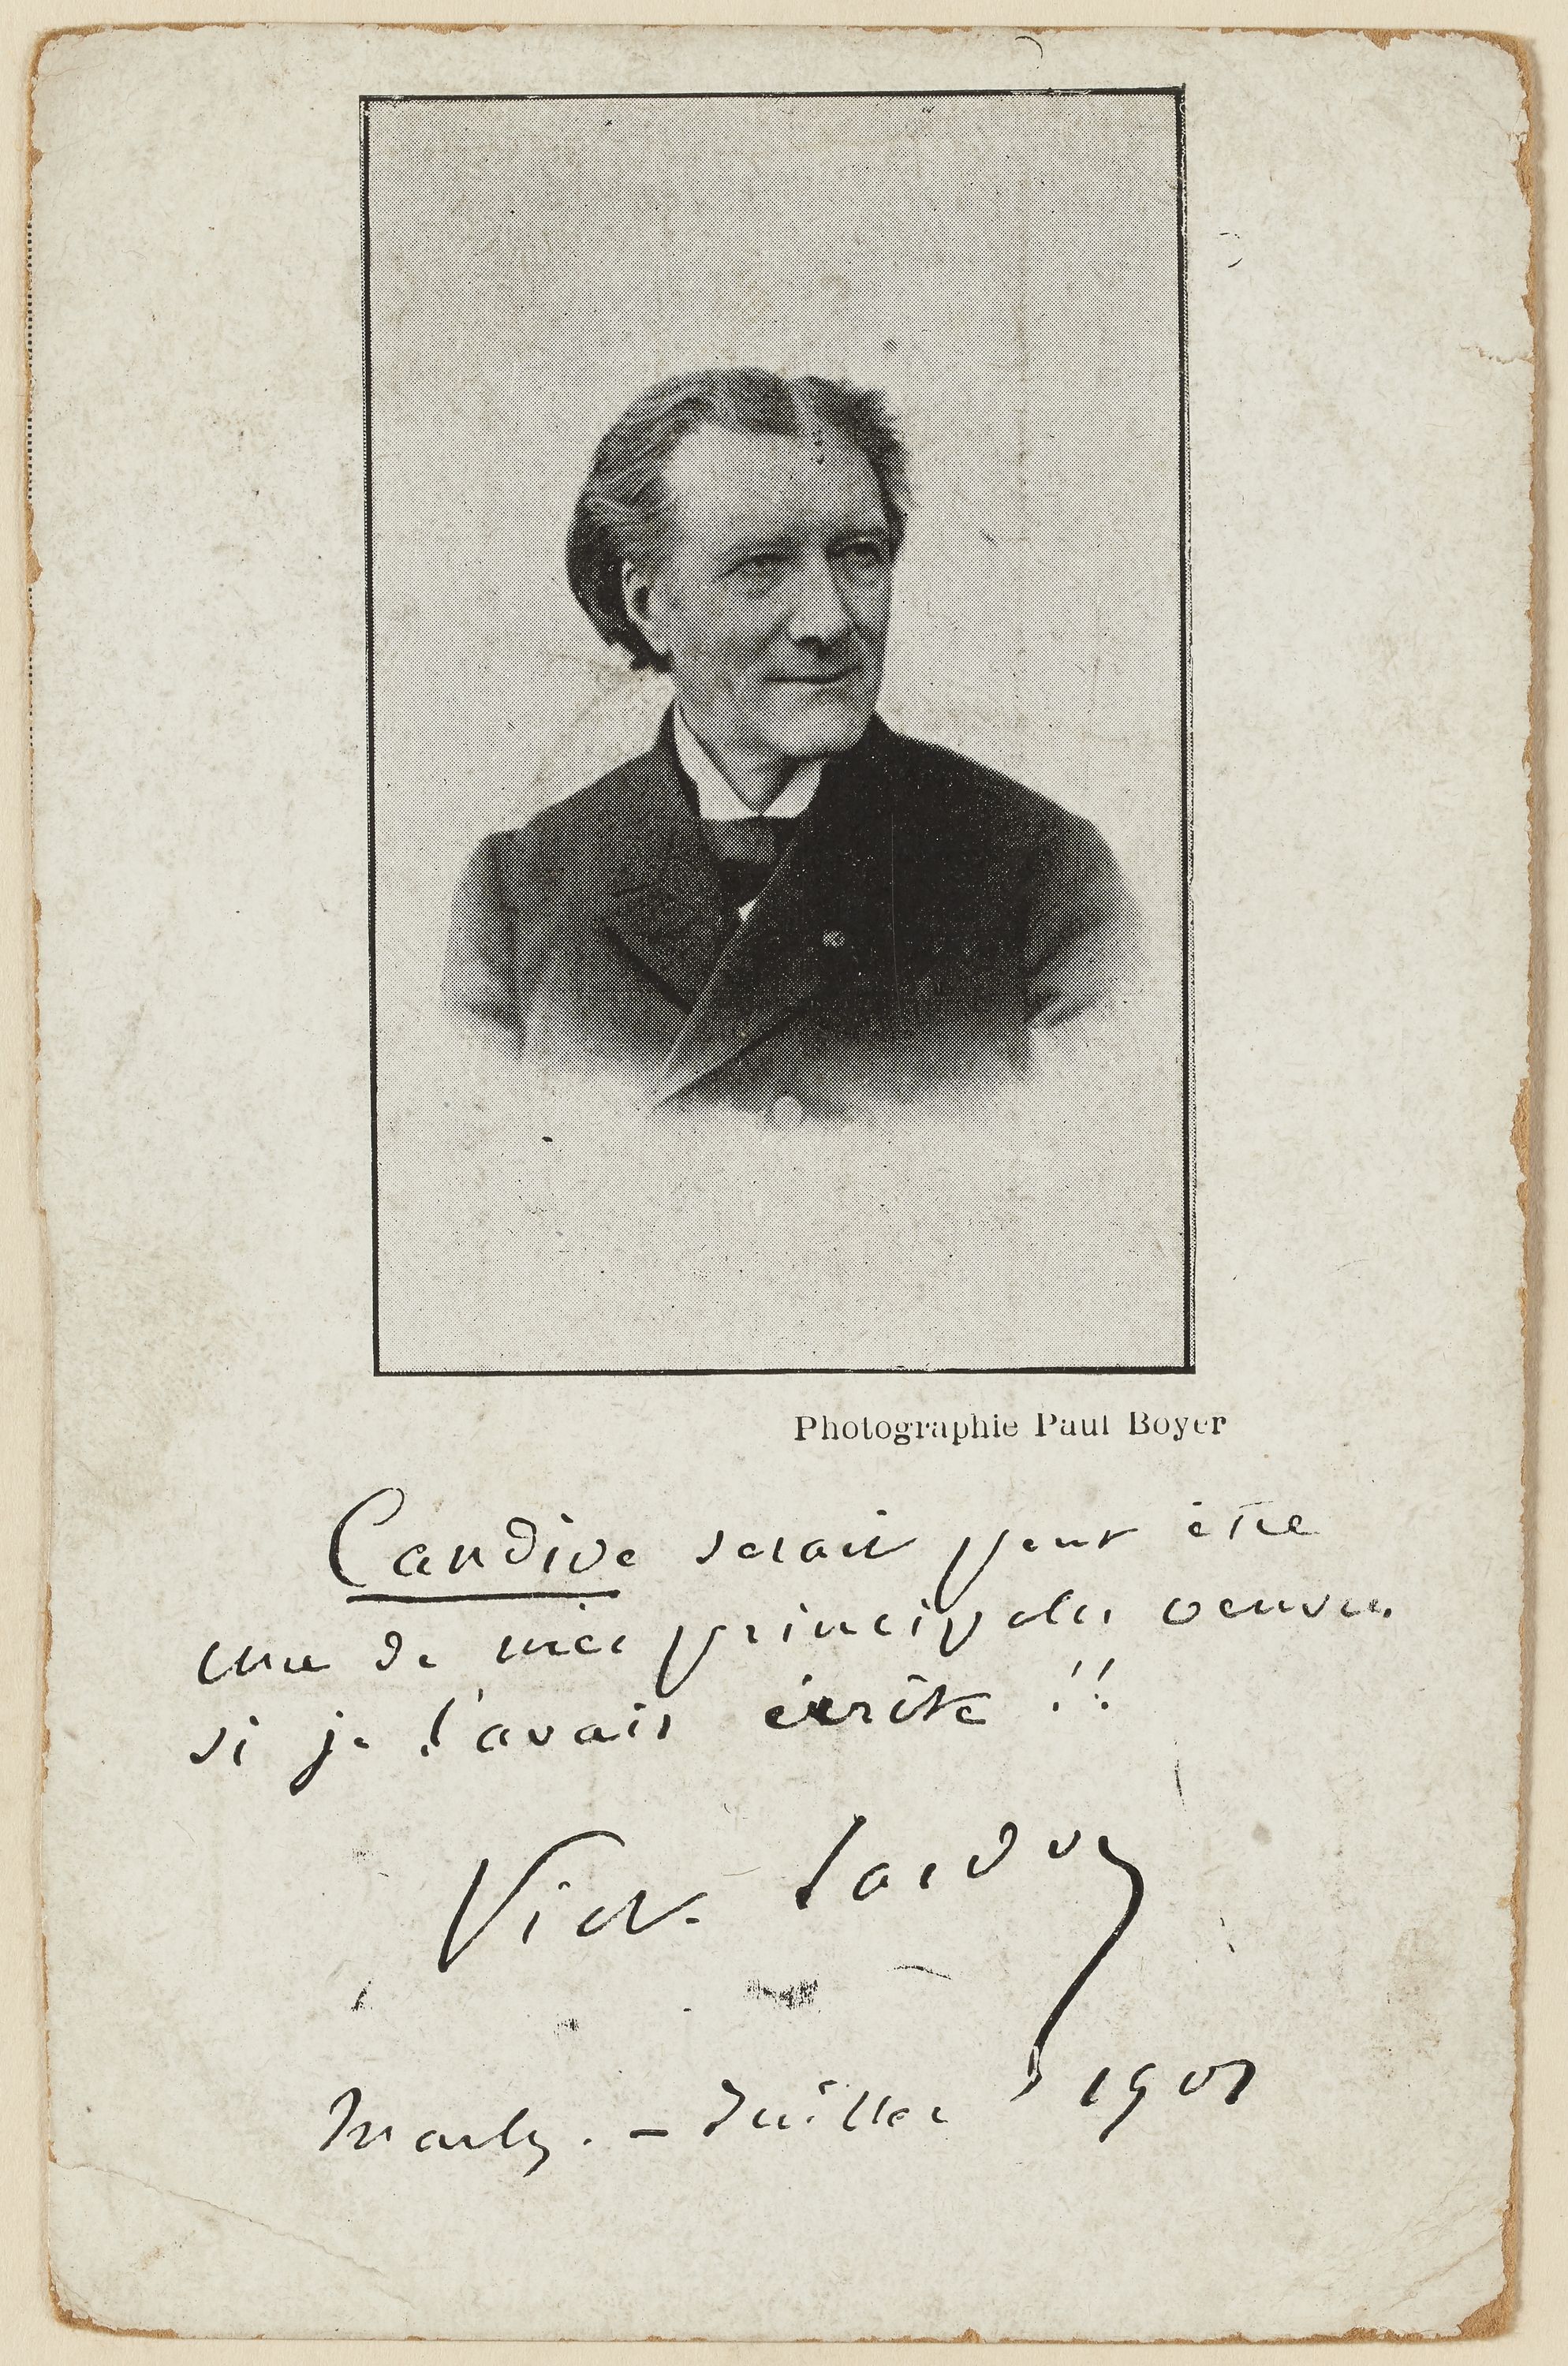 Photographie Paul Boyer
Candide serait peut être
une de mes principales oeuvres
si je l'avais écrite !!
Victor Sardou
Marly. — Juillet 1901